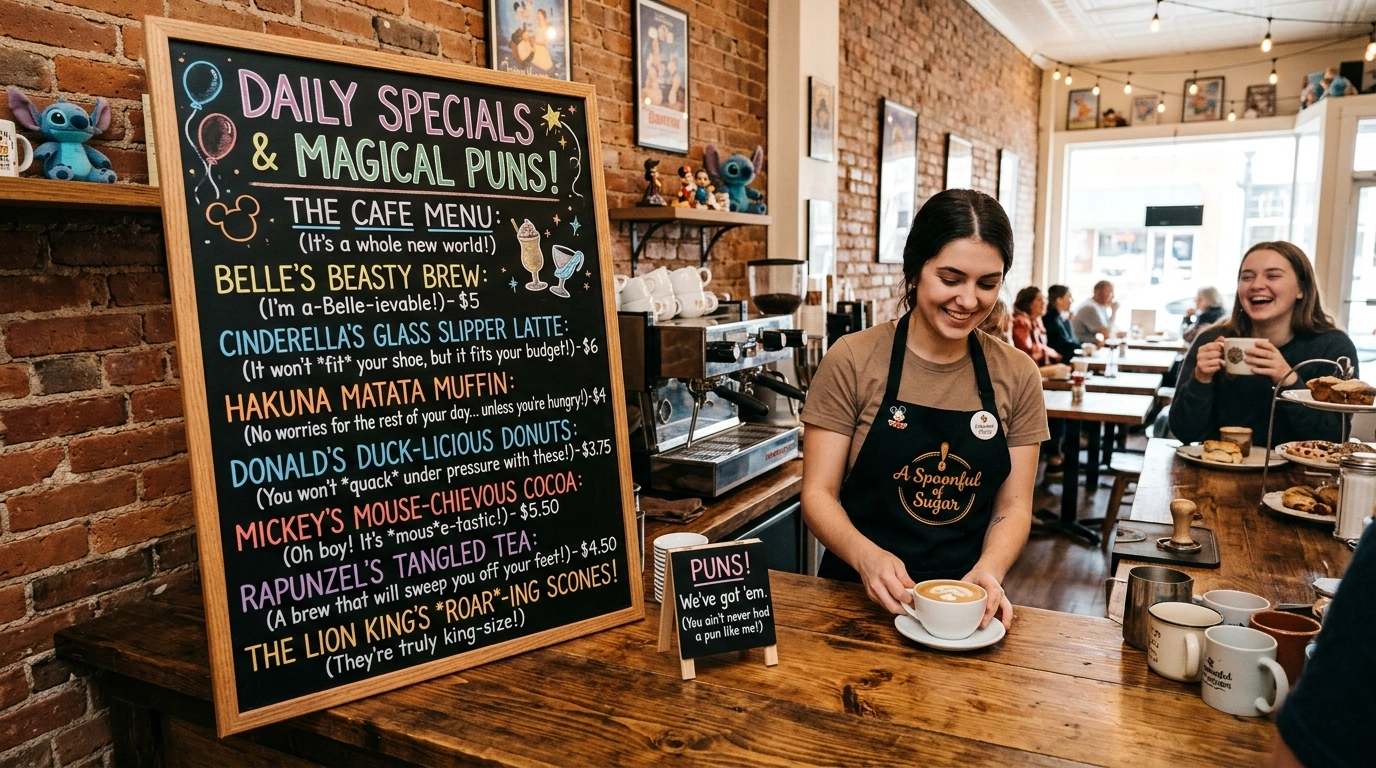 DAILY SPECIALS
& MAGICAL PUNS!
THE CAFE MENU:
(It's a whole new world!)
BELLE'S BEASTY BREW:
(I'm a-Belle-ievable!) - $5
CINDERELLA'S GLASS SLIPPER LATTE:
(It won't *fit* your shoe, but it fits your budget!) - $6
HAKUNA MATATA MUFFIN:
(No worries for the rest of your day... unless you're hungry!) - $4
DONALD'S DUCK-LICIOUS DONUTS:
(You won't *quack* under pressure with these!) - $3.75
MICKEY'S MOUSE-CHIEVOUS COCOA:
(Oh boy! It's *mous*e-tastic!) - $5.50
RAPUNZEL'S TANGLED TEA:
(A brew that will sweep you off your feet!) - $4.50
THE LION KING'S *ROAR*-ING SCONES!
(They're truly king-size!)
PUNS!
We've got 'em.
(You ain't never had
a pun like me!)
A Spoonful
of
Sugar